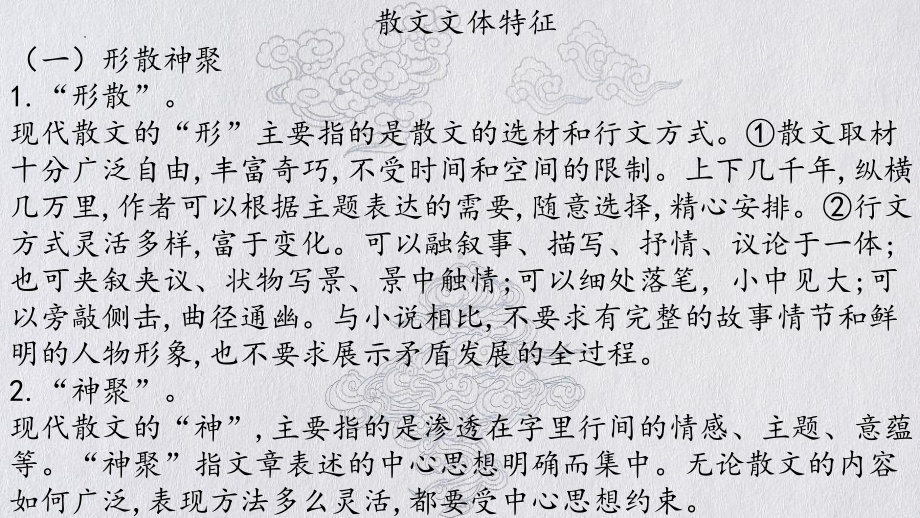 散文文体特征
（一）形散神聚
1.“形散”。
现代散文的“形”主要指的是散文的选材和行文方式。①散文取材
十分广泛自由,丰富奇巧,不受时间和空间的限制。上下几千年,纵横
几万里,作者可以根据主题表达的需要,随意选择,精心安排。②行文
方式灵活多样,富于变化。可以融叙事、描写、抒情、议论于一体;
也可夹叙夹议、状物写景、景中触情;可以细处落笔，小中见大;可
以旁敲侧击,曲径通幽。与小说相比,不要求有完整的故事情节和鲜
明的人物形象,也不要求展示矛盾发展的全过程。
2.“神聚”。
现代散文的“神”,主要指的是渗透在字里行间的情感、主题、意蕴
等。“神聚”指文章表述的中心思想明确而集中。无论散文的内容
如何广泛,表现方法多么灵活,都要受中心思想约束。